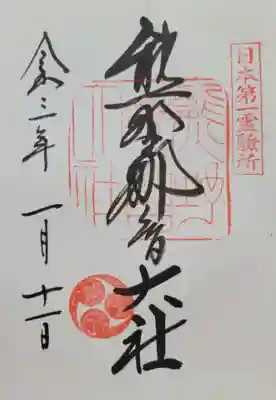 日本第一霊験所
熊野那智大社
令三年 一月十一日